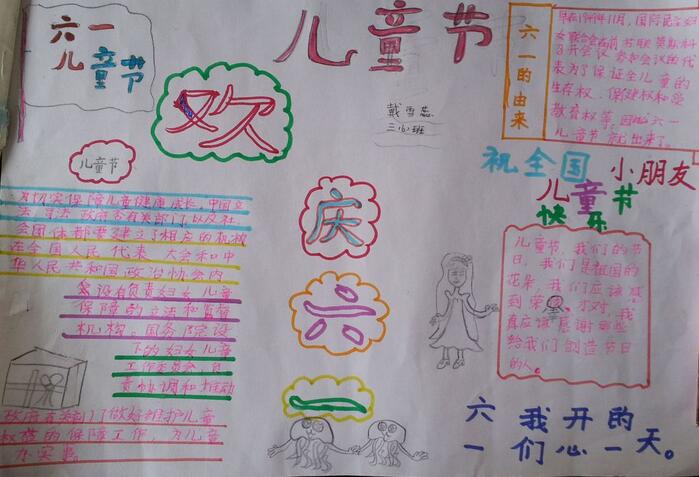 六一
儿童节
儿童节
欢
庆
六
一
戴雪蕊
三(6)班
六一的由来
早在1949年11月,国际民主妇
女联合会在前苏联莫斯科
召开会议,参加会议的代
表为了保证全儿童的
生存权、保健权和受
教育权等,因此六一
儿童节就出来了。
祝全国小朋友
儿童节
快乐
儿童节
为切实保障儿童健康成长,中国立
法、司法、政府各有关部门,以及社
会团体都要建立了相应的机构
在全国人民代表大会和中
华人民共和国政治协会内
会设有负责妇女儿童
保障的立法和监督
机构。国务院设
下的妇女儿童
工作委员会,负
责协调和推动
政府有关部门做好维护儿童
权益的保障工作,为儿童
办实事。
儿童节,我们的节
日,我们是祖国的
花朵,我们应该感
到荣 才对,我
真应该感谢那些
给我们创造节日
的人。
六 我开的
一 们心一天。